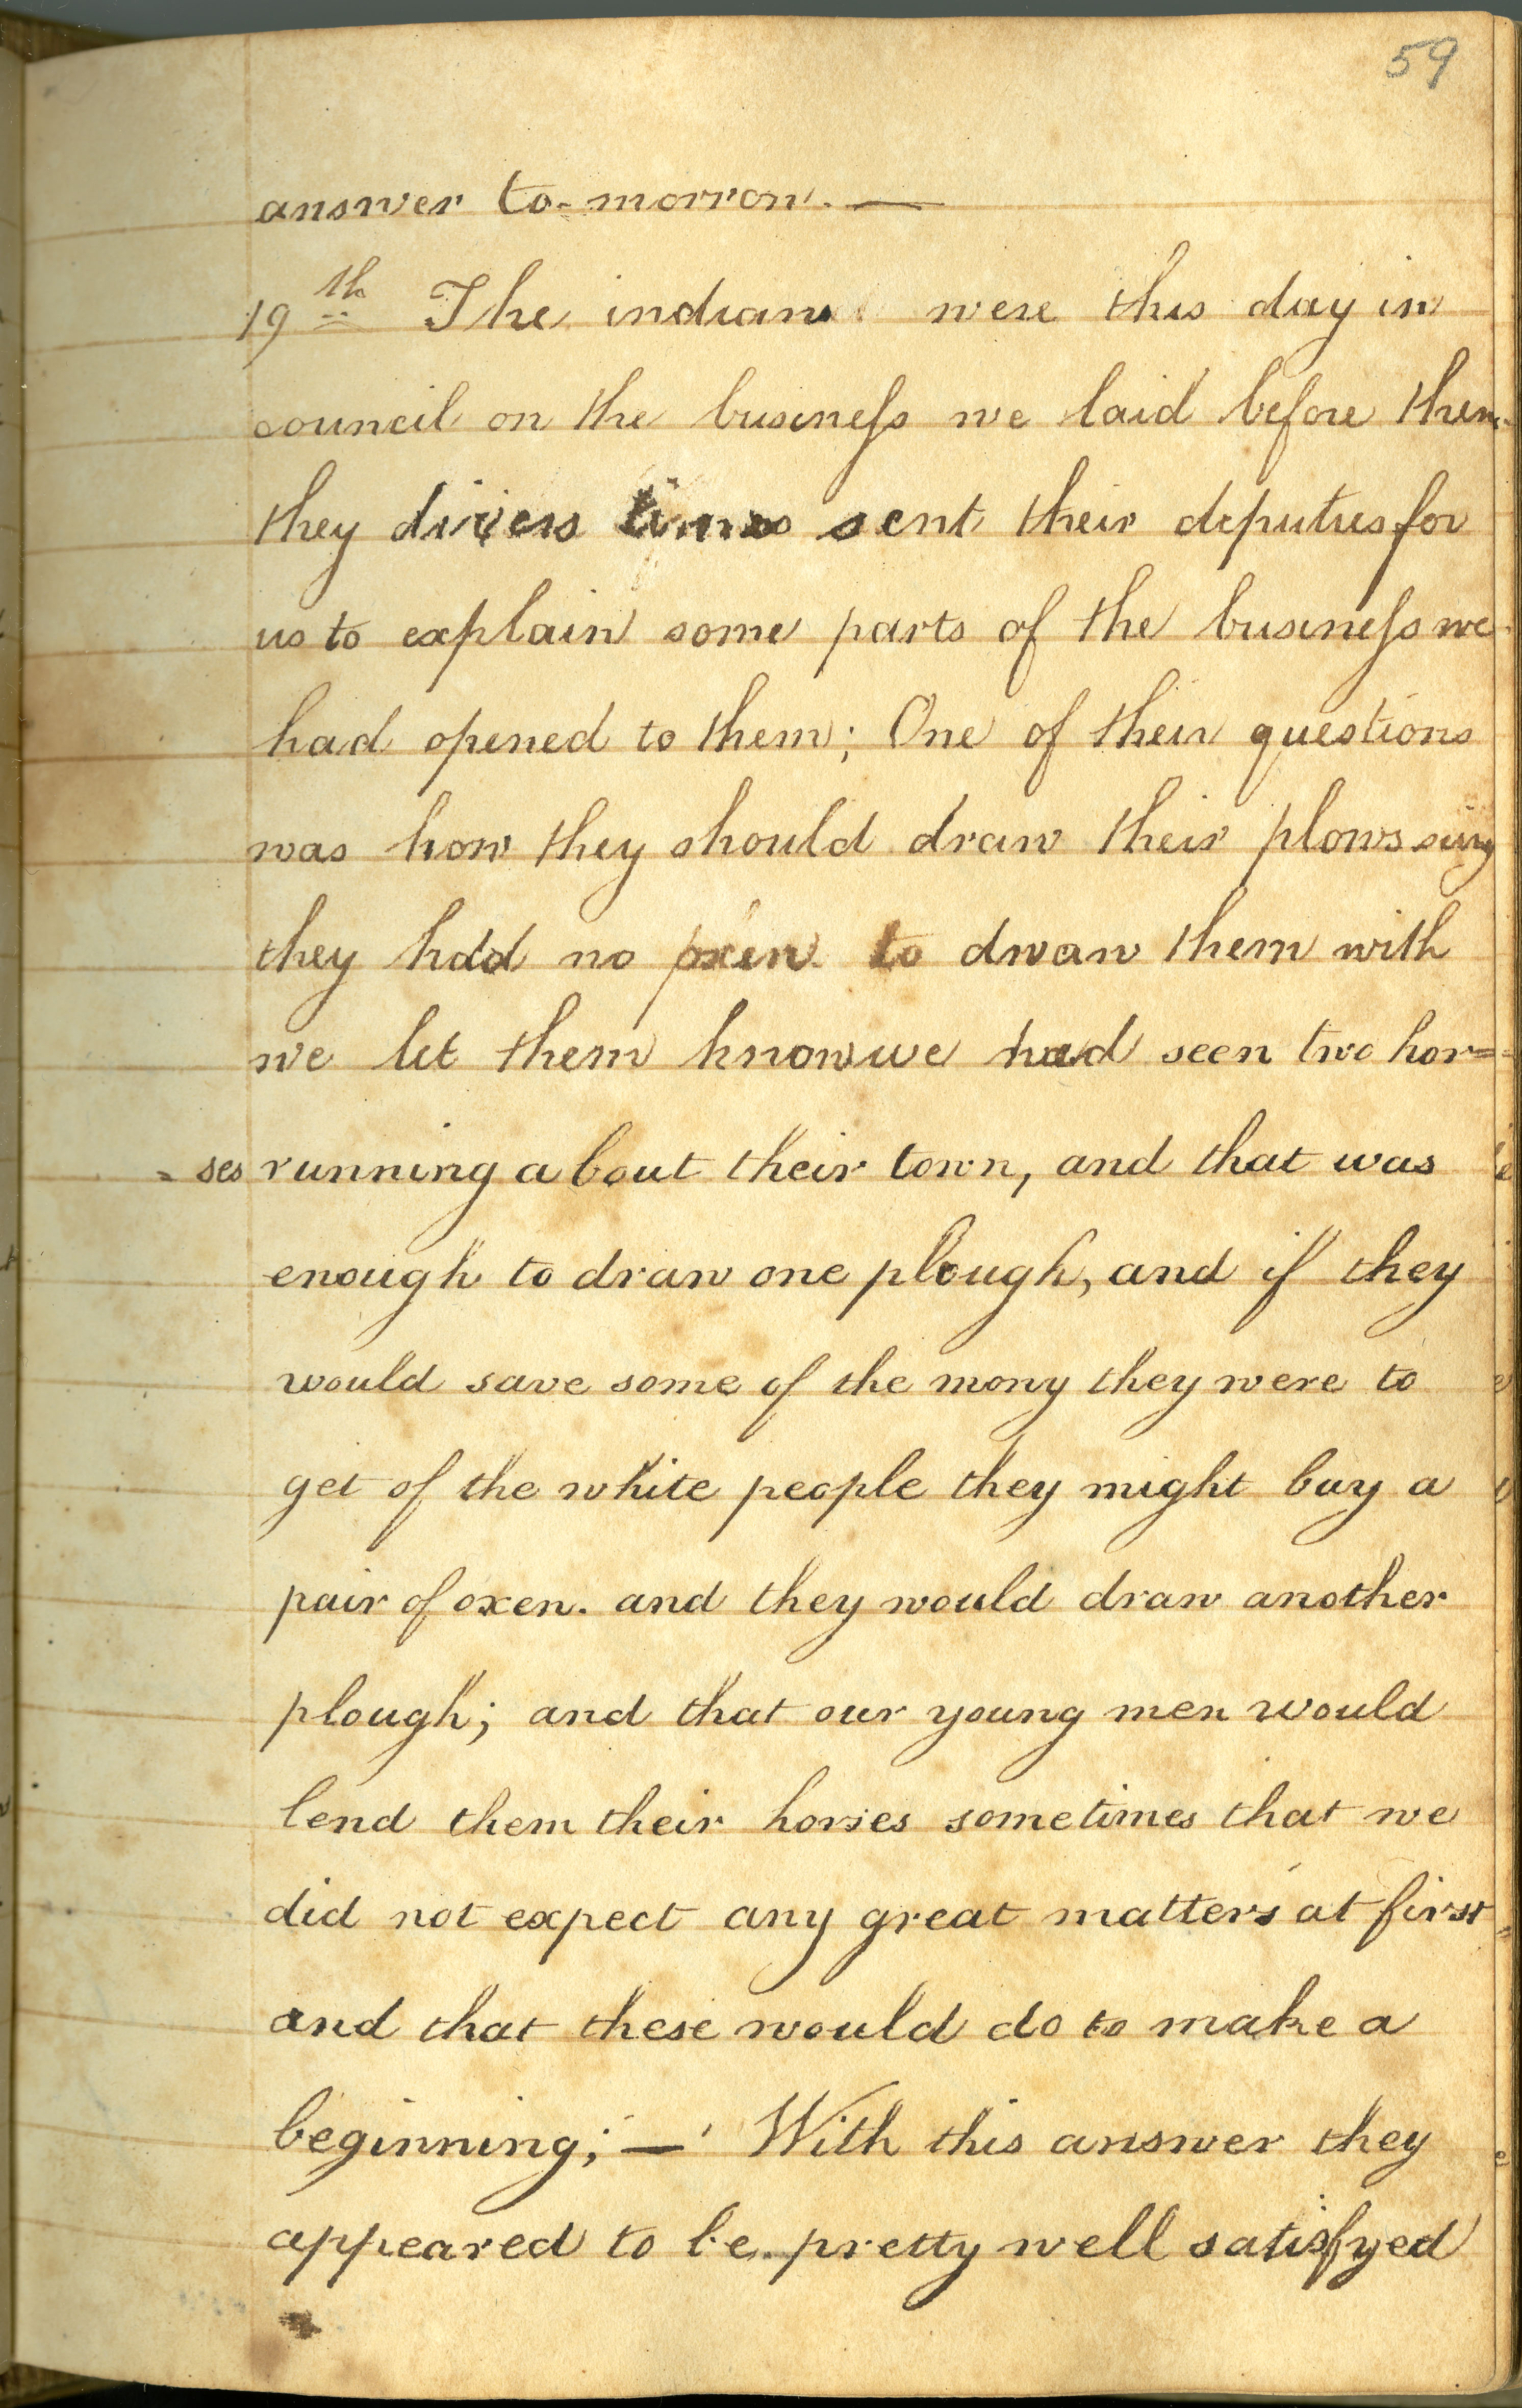 59
answer to-morrow. —
19th The indians were this day in
council on the business we laid before them
they divers times sent their deputies for
us to explain some parts of the business we
had opened to them; One of their questions
was how they should draw their plows seing
they had no oxen to drwan them with
we let them know we had seen two hor=
= ses running about their town, and that was
enough to draw one plough, and if they
would save some of the mony they were to
get of the white people they might buy a
pair of oxen. and they would draw another
plough; and that our young men would
lend them their horses sometimes that we
did not expect any great matters at first
and that these would do to make a
beginning; — With this answer they
appeared to be pretty well satisfyed